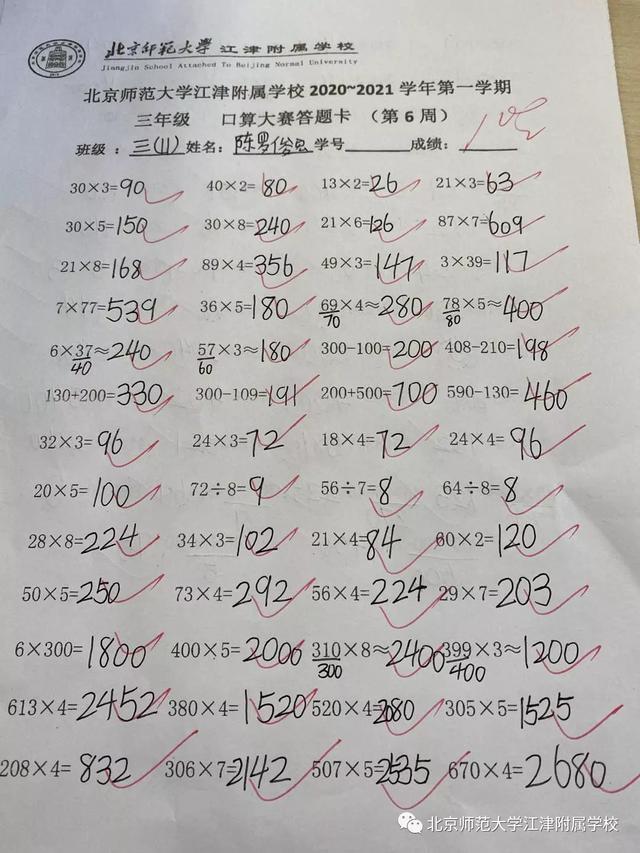 北京师范大学江津附属学校
Jiangjin School Attached To Beijing Normal University
北京师范大学江津附属学校 2020~2021 学年第一学期
三年级 口算大赛答题卡 （第 6 周）
班级：三(11) 姓名：陈罗俊 学号 成绩：100
30×3=90 40×2=80 13×2=26 21×3=63
30×5=150 30×8=240 21×6=126 87×7=609
21×8=168 89×4=356 49×3=147 3×39=117
7×77=539 36×5=180 69×4≈280 78×5≈400
70 80
6×37≈240 57×3≈180 300-100=200 408-210=198
40 60
130+200=330 300-109=191 200+500=700 590-130=460
32×3=96 24×3=72 18×4=72 24×4=96
20×5=100 72÷8=9 56÷7=8 64÷8=8
28×8=224 34×3=102 21×4=84 60×2=120
50×5=250 73×4=292 56×4=224 29×7=203
6×300=1800 400×5=2000 310×8≈2400 399×3≈1200
300 400
613×4=2452 380×4=1520 520×4=2080 305×5=1525
208×4=832 306×7=2142 507×5=2535 670×4=2680
北京师范大学江津附属学校